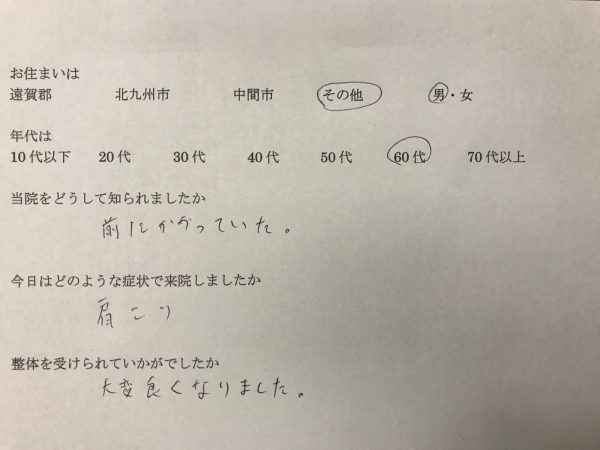 お住まいは
遠賀郡 北九州市 中間市 その他 男・女
年代は
10代以下 20代 30代 40代 50代 60代 70代以上
当院をどうして知られましたか
前にかかっていた。
今日はどのような症状で来院しましたか
肩こり
整体を受けられていかがでしたか
大変良くなりました。